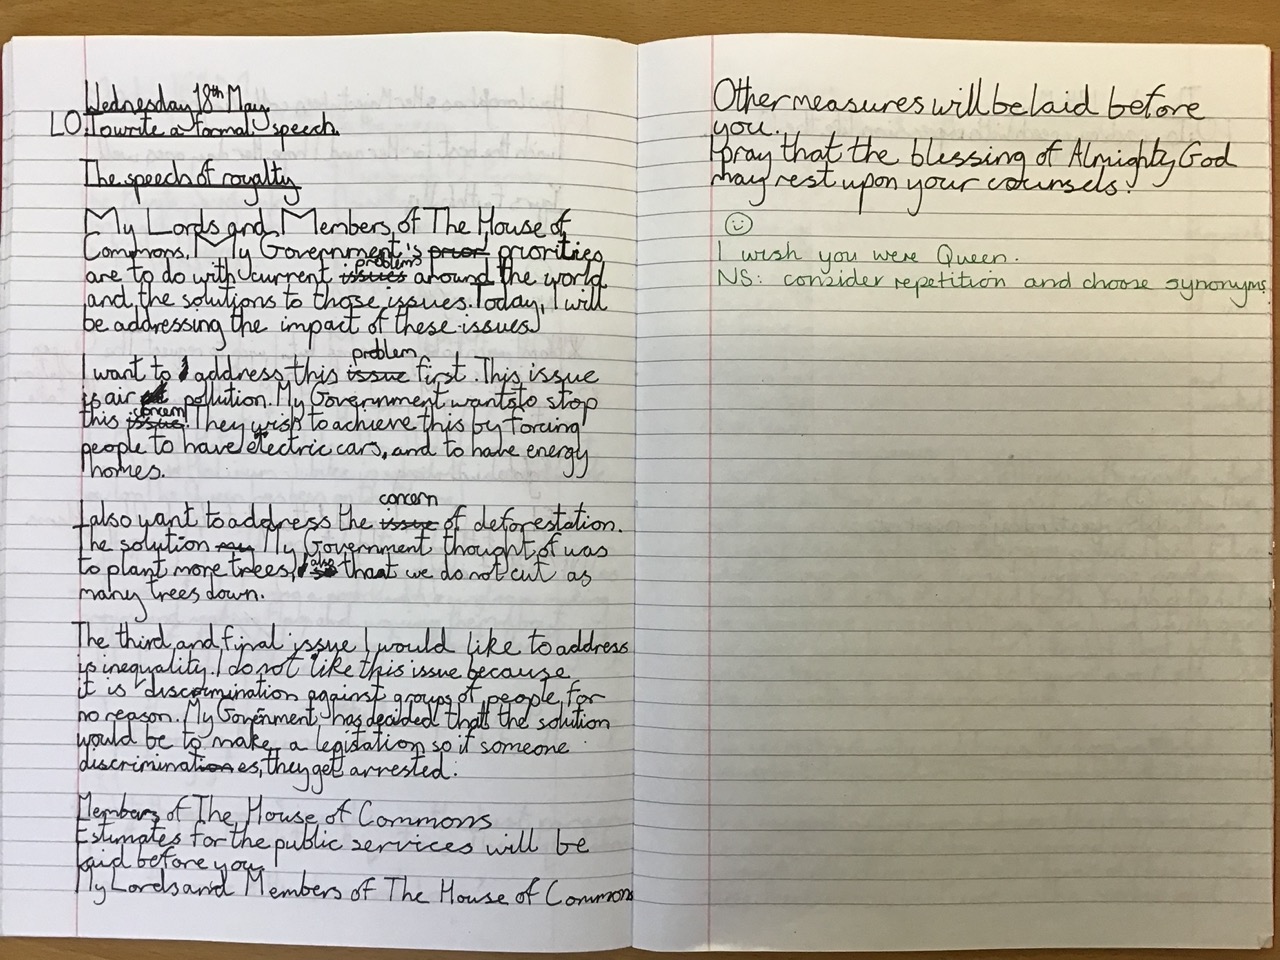 Wednesday 18th May
LO: To write a formal speech.
The speech of royalty
My Lords and Members of The House of
Commons. My Government's prior priorities
are to do with current issues problems around the world
and the solutions to those issues. Today, I will
be addressing the impact of these issues.
I want to address this issue problem first. This issue
is air pollution. My Government wants to stop
this issue concern. They wish to achieve this by forcing
people to have electric cars, and to have energy
homes.
I also want to address the issue concern of deforestation.
The solution my My Government thought of was
to plant more trees, also that we do not cut as
many trees down.
The third and final issue I would like to address
is inequality. I do not like this issue because
it is discrimination against groups of people for
no reason. My Government has decided that the solution
would be to make a legistation so if someone
discriminationes, they get arrested.
Members of The House of Commons
Estimates for the public services will be
laid before you.
My Lords and Members of The House of Commons
Other measures will be laid before
you.
I pray that the blessing of Almighty God
may rest upon your counsels.
I wish you were Queen.
NS: consider repetition and choose synonyms.